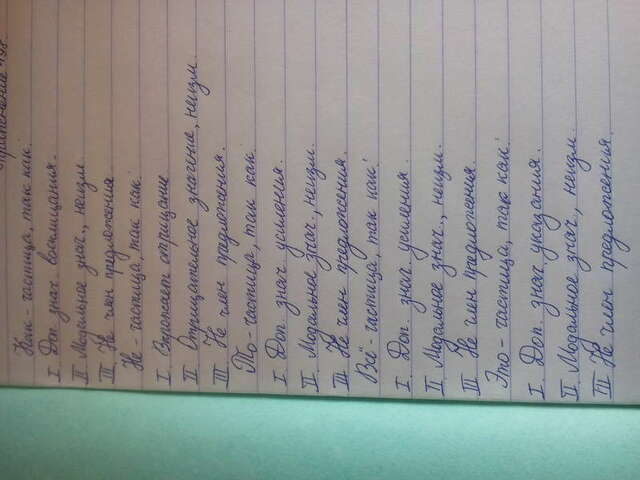 Упражнение 498
Как - частица, так как:
I Доп. знач. восклицания.
II Модальное знач., неизм.
III. Не член предложения
Не - частица, так как:
I. Выражает отрицание
II Отрицательное значение, неизм.
III. Не член предложения.
То - частица, так как:
I. Доп. знач. усиления.
II. Модальное знач., неизм.
III. Не член предложения.
Всё - частица, так как:
I. Доп. знач. усиления.
II. Модальное знач., неизм.
III. Не член предложения.
Это - частица, так как:
I. Доп. знач. указания.
II. Модальное знач., неизм.
III Не член предложения.